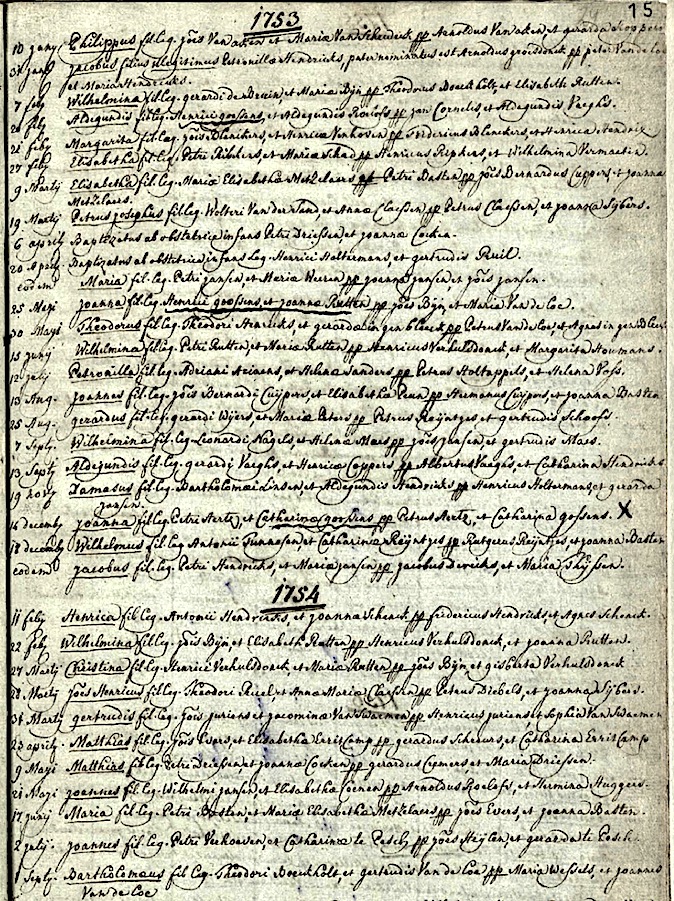 15
1753
10 jany Philippus fil. leg. jöis Van aken et Mariæ Van pp Arnoldus Van aken et gerarda
31 jany jacobus filius illegitimus Petronillæ Hendricks, pater nominatus est Arnoldus pp peter Van de Loo
et Maria Hendricks.
7 feby Wilhelmina fil. leg. gerardi de Bruin, et Mariæ Bijn pp Theodorus Boeckholt et Elisabeth Rutten.
feby Aldegundis fil. leg. Henrici goossens, et Aldegundis Roelofs pp jan Cornelis et Aldegundis Vaeghs.
feby Margarita fil. leg. jöis Blenckers, et Henricæ Venhoven pp Fredericus Blenckers, et Henrica Hendrix
27 feby Elisabetha fil. leg. Petri Ripkens, et Mariæ Schad pp Henricus Ripkens, et Wilhelmina
9 Martij Elisabetha fil. leg. Mariæ Elisabethæ Metzelaers Petri Basten pp jöis Bernardus Cuppens et joanna
Metzelaers.
19 Martij Petrus josephus fil. leg. Wolteri Van der Sand, et Annæ Claessen pp Petrus Claessen, et joanna Sijbens.
6 aprilij Baptizatus ab obstetrice infans Petri Driessen, et joannæ Coeken.
20 Aprilij Baptizatus ab obstetrice infans leg. Henrici Holtermans, et gertrudis Ruil.
eodem Maria fil. leg. Petri jansen, et Mariæ pp joanna jansen et jöis jansen.
25 Maij joanna fil. leg. Henrici goossens, et joannæ Rutten pp jöis Bijn, et Maria Van de Loe.
30 Maij Theodorus fil. leg. Theodori Henricks, et gerardæ in gen bloeck pp Petrus Van de Loe, et Agnes in gen Bloeck
15 junij Wilhelmina fil. leg. Petri Rutten, et Mariæ Rutten pp Henricus Verhulsdonck, et Margarita Houmans.
12 julij Petronilla fil. leg. Adriani Ariaens, et Helenæ Sanders pp Petrus Holtappels, et Helena Voss.
13 Aug. joannes fil. leg. jöis Bernardi Cuijpers, et Elisabethæ pp Hermanus Cuijpers, et joanna Basten
25 Aug. gerardus fil. leg. gerardi Wijers, et Mariæ Peters pp Petrus Reijntjes et gertrudis Schoofs.
7 Septs. Wilhelmina fil. leg. Leonardi Nagels, et Helenæ Maes pp jöis jansen, et gertrudis Maes.
13 Septs Aldegundis fil. leg. gerardi Vaeghs, et Henricæ Cuypers pp Albertus Vaeghs, et Catharina Hendricks
19 novy Damasus fil. leg. Bartholomæi jansen, et Aldegundis Hendricks pp Henricus Holtermans, et gerarda
jansen.
14 decemby joanna fil. leg. Petri Aertz, et Catharinæ goossens pp Petrus Aertz, et Catharina gossens. X
18 decemby Wilhelmus fil. leg. Antonii Tunnesen, et Catharinæ Reijntjes pp Rutgerus Reijntjes, et joanna Basten
eodem jacobus fil. leg. Petri Hendricks, et Mariæ jansen pp jacobus Dericks, et Maria Thijssen.
1754
11 feby Henrica fil. leg. Antonii Hendricks, et joanna Schenck pp fredericus Hendricks et Agnes Schenck.
22 feby Wilhelmina fil. leg. jöis Bijn, et Elisabeth Rutten pp Henricus Verhulsdonck, et joanna Rutten.
27 Martij Christina fil. leg. Henrici Verhulsdonck, et Mariæ Rutten pp jöis Bijn, et gisberta Verhulsdonck
28 Martij jöes Henricus fil. leg. Theodori et Annæ Mariæ Claessen pp Petrus Diebels, et joanna Sijbers.
31 Martij gertrudis fil. leg. jöis juriens, et jacomina Van Swaemen pp Henricus juriens, et Sophia Van Swaemen
23 aprilij Matthias fil. leg. jöis Evers, et Elisabetha ErritCamp pp gerardus Scheurs, et Catharina ErritCamp
9 Maij Matthias fil. leg. Petri Driesen, et joanna Coeken pp gerardus et Maria Driessen.
21 Maij joannes fil. leg. Wilhelmi jansen, et Elisabethæ Coenen pp Arnoldus Roelofs, et Hermina Huggers.
17 junij Maria fil. leg. Petri Basten et Maria Elisabetha Metzelaers pp jöis Evers, et joanna Basten.
2 julij joannes fil. leg. Petri Verhoeven, et Catharinæ te Pesch pp jöis Heijlen, et gerarda te Pesch.
1 Septs. Bartholomeus fil. leg. Theodori Boeckholt, et gertrudis Van de Loe pp Maria Wessels, et joannes
Van de Loe